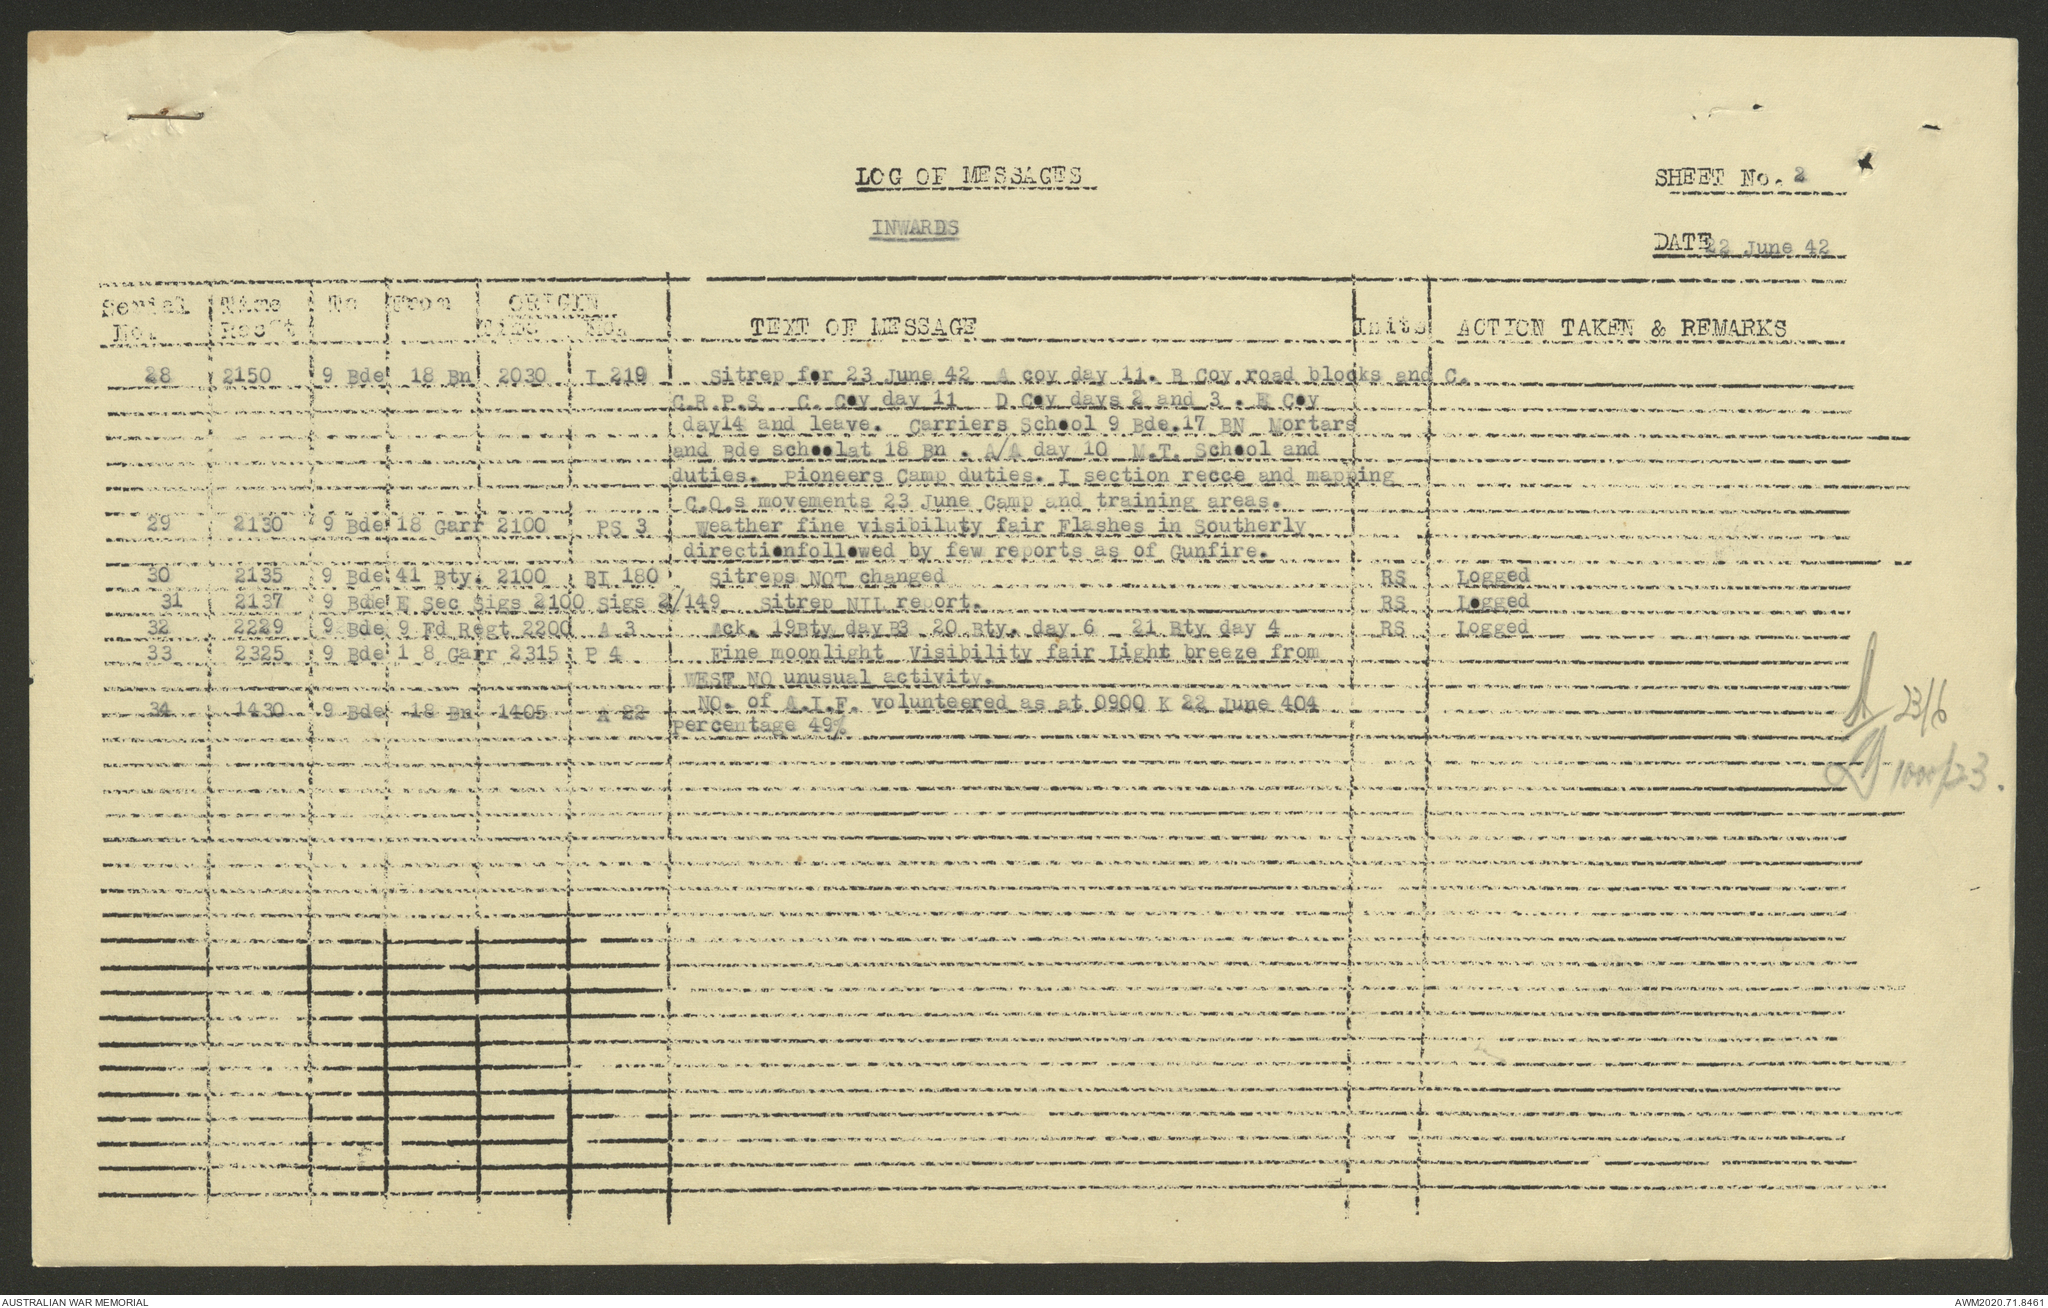 LOG OF MESSAGES
SHEET No. 2
INWARDS
DATE 22 June 42
Serial No. Time Rec'd To From ORIGIN Time No. TEXT OF MESSAGE Inits ACTION TAKEN & REMARKS
28 2150 9 Bde 18 Bn 2030 I 219 Sitrep for 23 June 42 A coy day 11. B Coy road blocks and C.
C.R.P.S C. Coy day 11 D Coy days 2 and 3 . E Coy
day14 and leave. Carriers School 9 Bde.17 BN Mortars
and Bde schoolat 18 Bn . A/A day 10 M.T. School and
duties. Pioneers Camp duties. I section recce and mapping
C.O.s movements 23 June Camp and training areas.
29 2130 9 Bde 18 Garr 2100 PS 3 Weather fine visibiluty fair Flashes in Southerly
directionfollowed by few reports as of Gunfire.
30 2135 9 Bde 41 Bty. 2100 BI 180 Sitreps NOT changed RS Logged
31 2137 9 Bde E Sec Sigs 2100 Sigs 2/149 Sitrep NIL report. RS Logged
32 2229 9 Bde 9 Fd Regt 2200 A 3 Ack. 19Bty day B3 20 Bty. day 6 21 Bty day 4 RS Logged
33 2325 9 Bde 1 8 Garr 2315 P 4 Fine moonlight Visibility fair Light breeze from
WEST NO unusual activity.
34 1430 9 Bde 18 Bn 1405 A 22 NO. of A.I.F. volunteered as at 0900 K 22 June 404
percentage 49%
23/6
1000/23.
AUSTRALIAN WAR MEMORIAL
AWM2020.71.8461